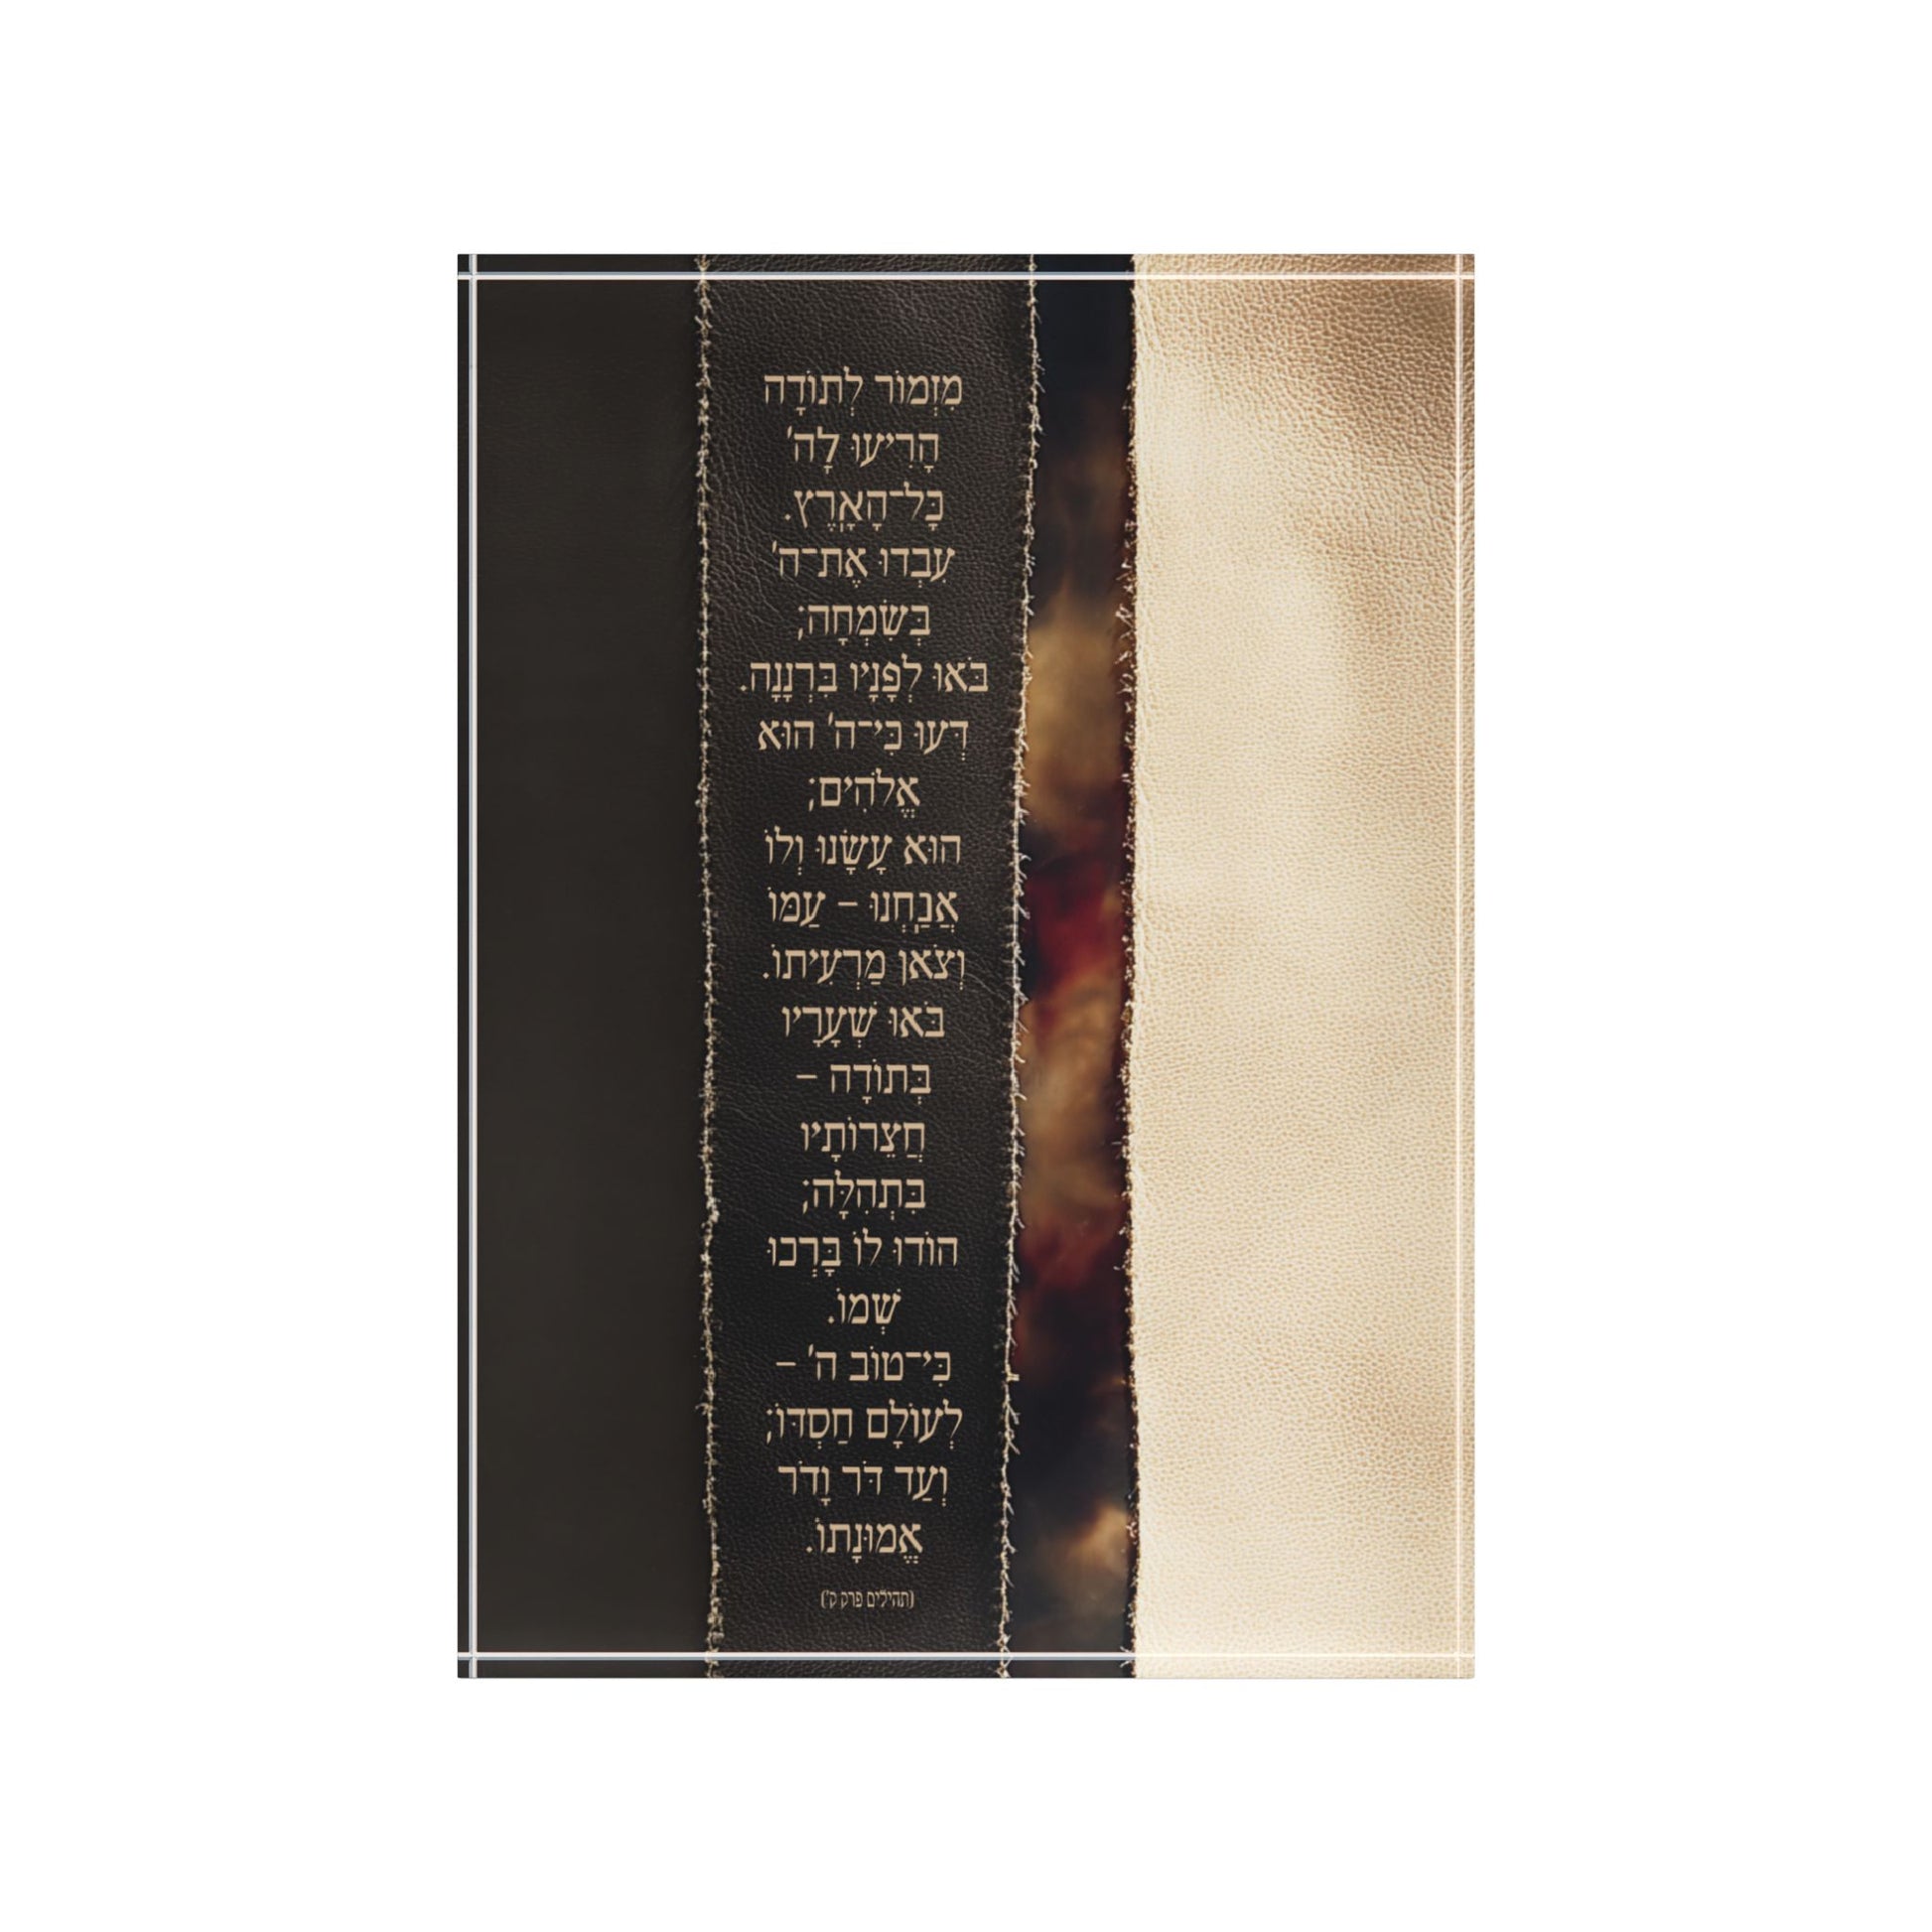 מִזְמוֹר לְתוֹדָה
הָרִיעוּ לַה'
כָּל־הָאָרֶץ.
עִבְדוּ אֶת־ה'
בְּשִׂמְחָה;
בֹּאוּ לְפָנָיו בִּרְנָנָה.
דְּעוּ כִּי־ה' הוּא
אֱלֹהִים;
הוּא עָשָׂנוּ וְלוֹ
אֲנַחְנוּ – עַמּוֹ
וְצֹאן מַרְעִיתוֹ.
בֹּאוּ שְׁעָרָיו
בְּתוֹדָה –
חֲצֵרוֹתָיו
בִּתְהִלָּה;
הוֹדוּ לוֹ בָּרְכוּ
שְׁמוֹ.
כִּי־טוֹב ה' –
לְעוֹלָם חַסְדּוֹ;
וְעַד דֹּר וָדֹר
אֱמוּנָתוֹ.
(תהילים פרק ק')